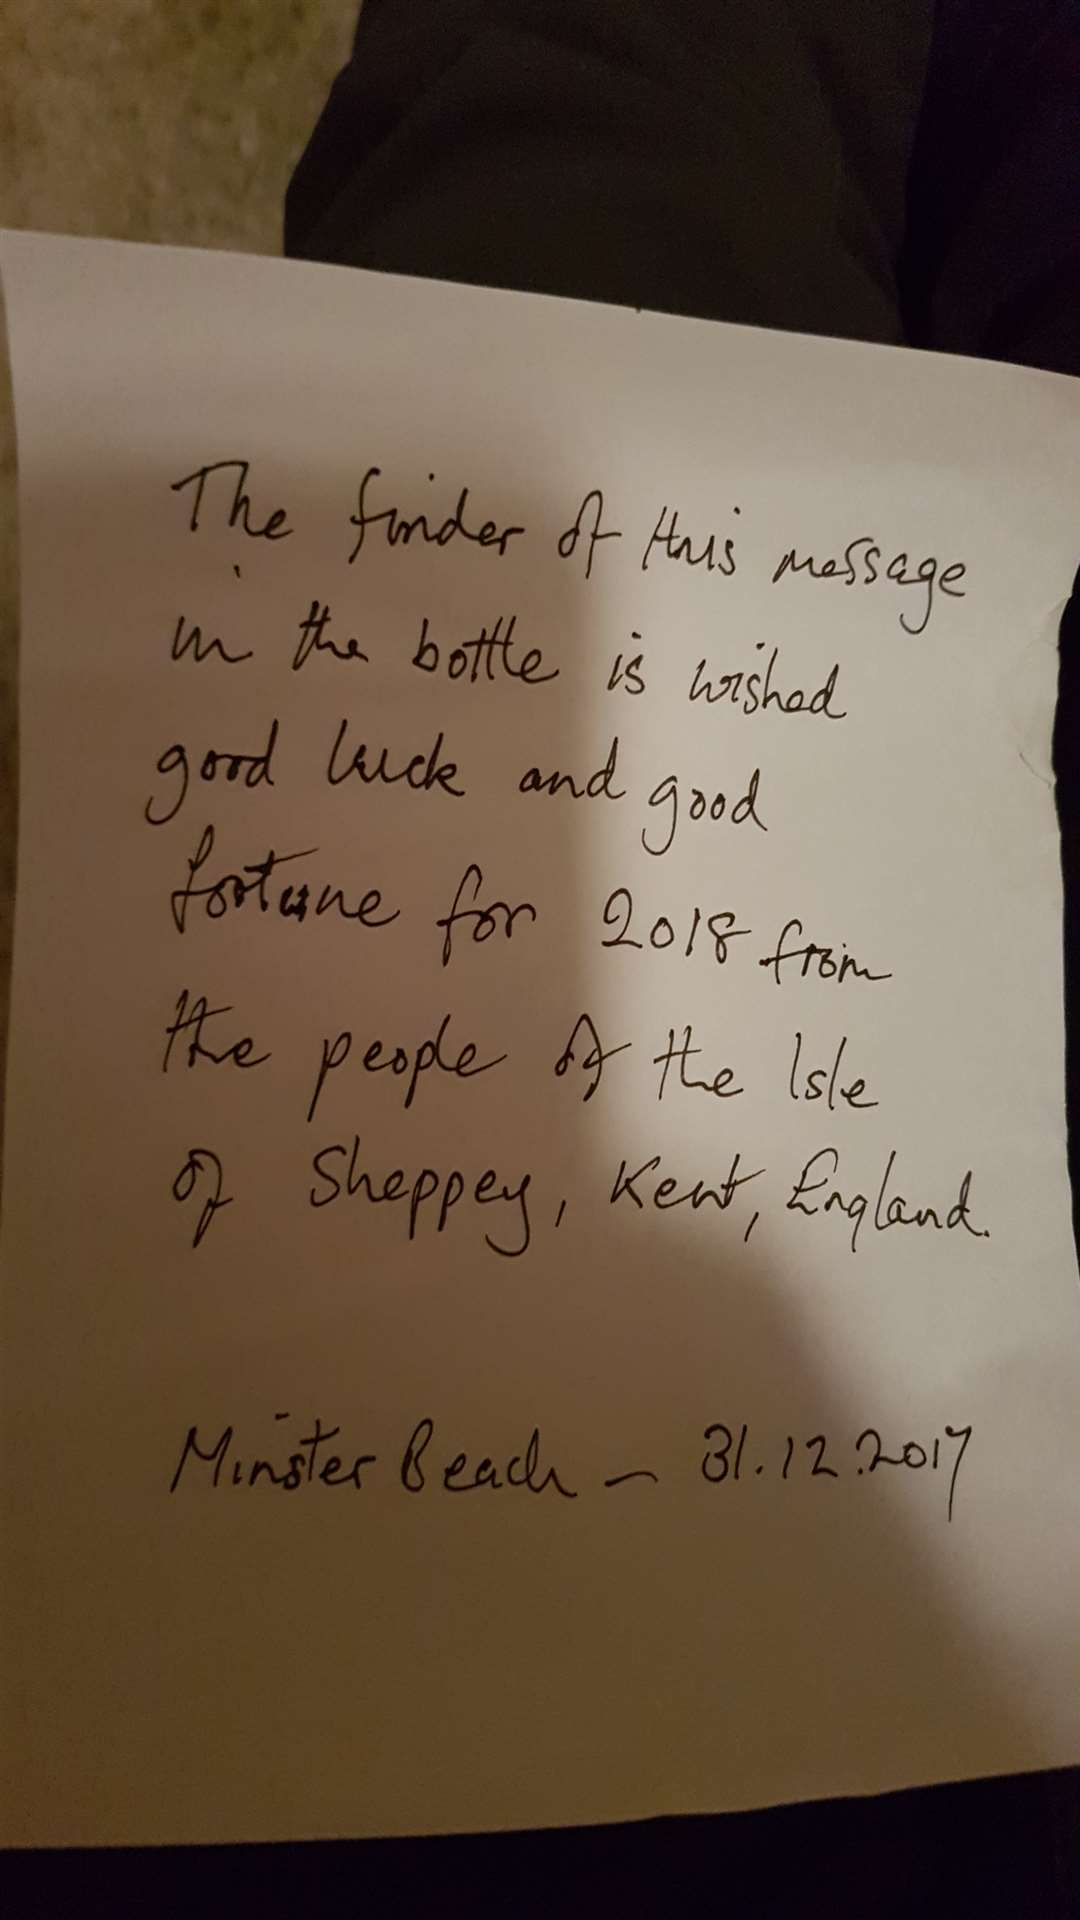 The finder of this message
in the bottle is wished
good luck and good
fortune for 2018 from
the people of the Isle
of Sheppey, Kent, England.
Minster Beach - 31.12.2017